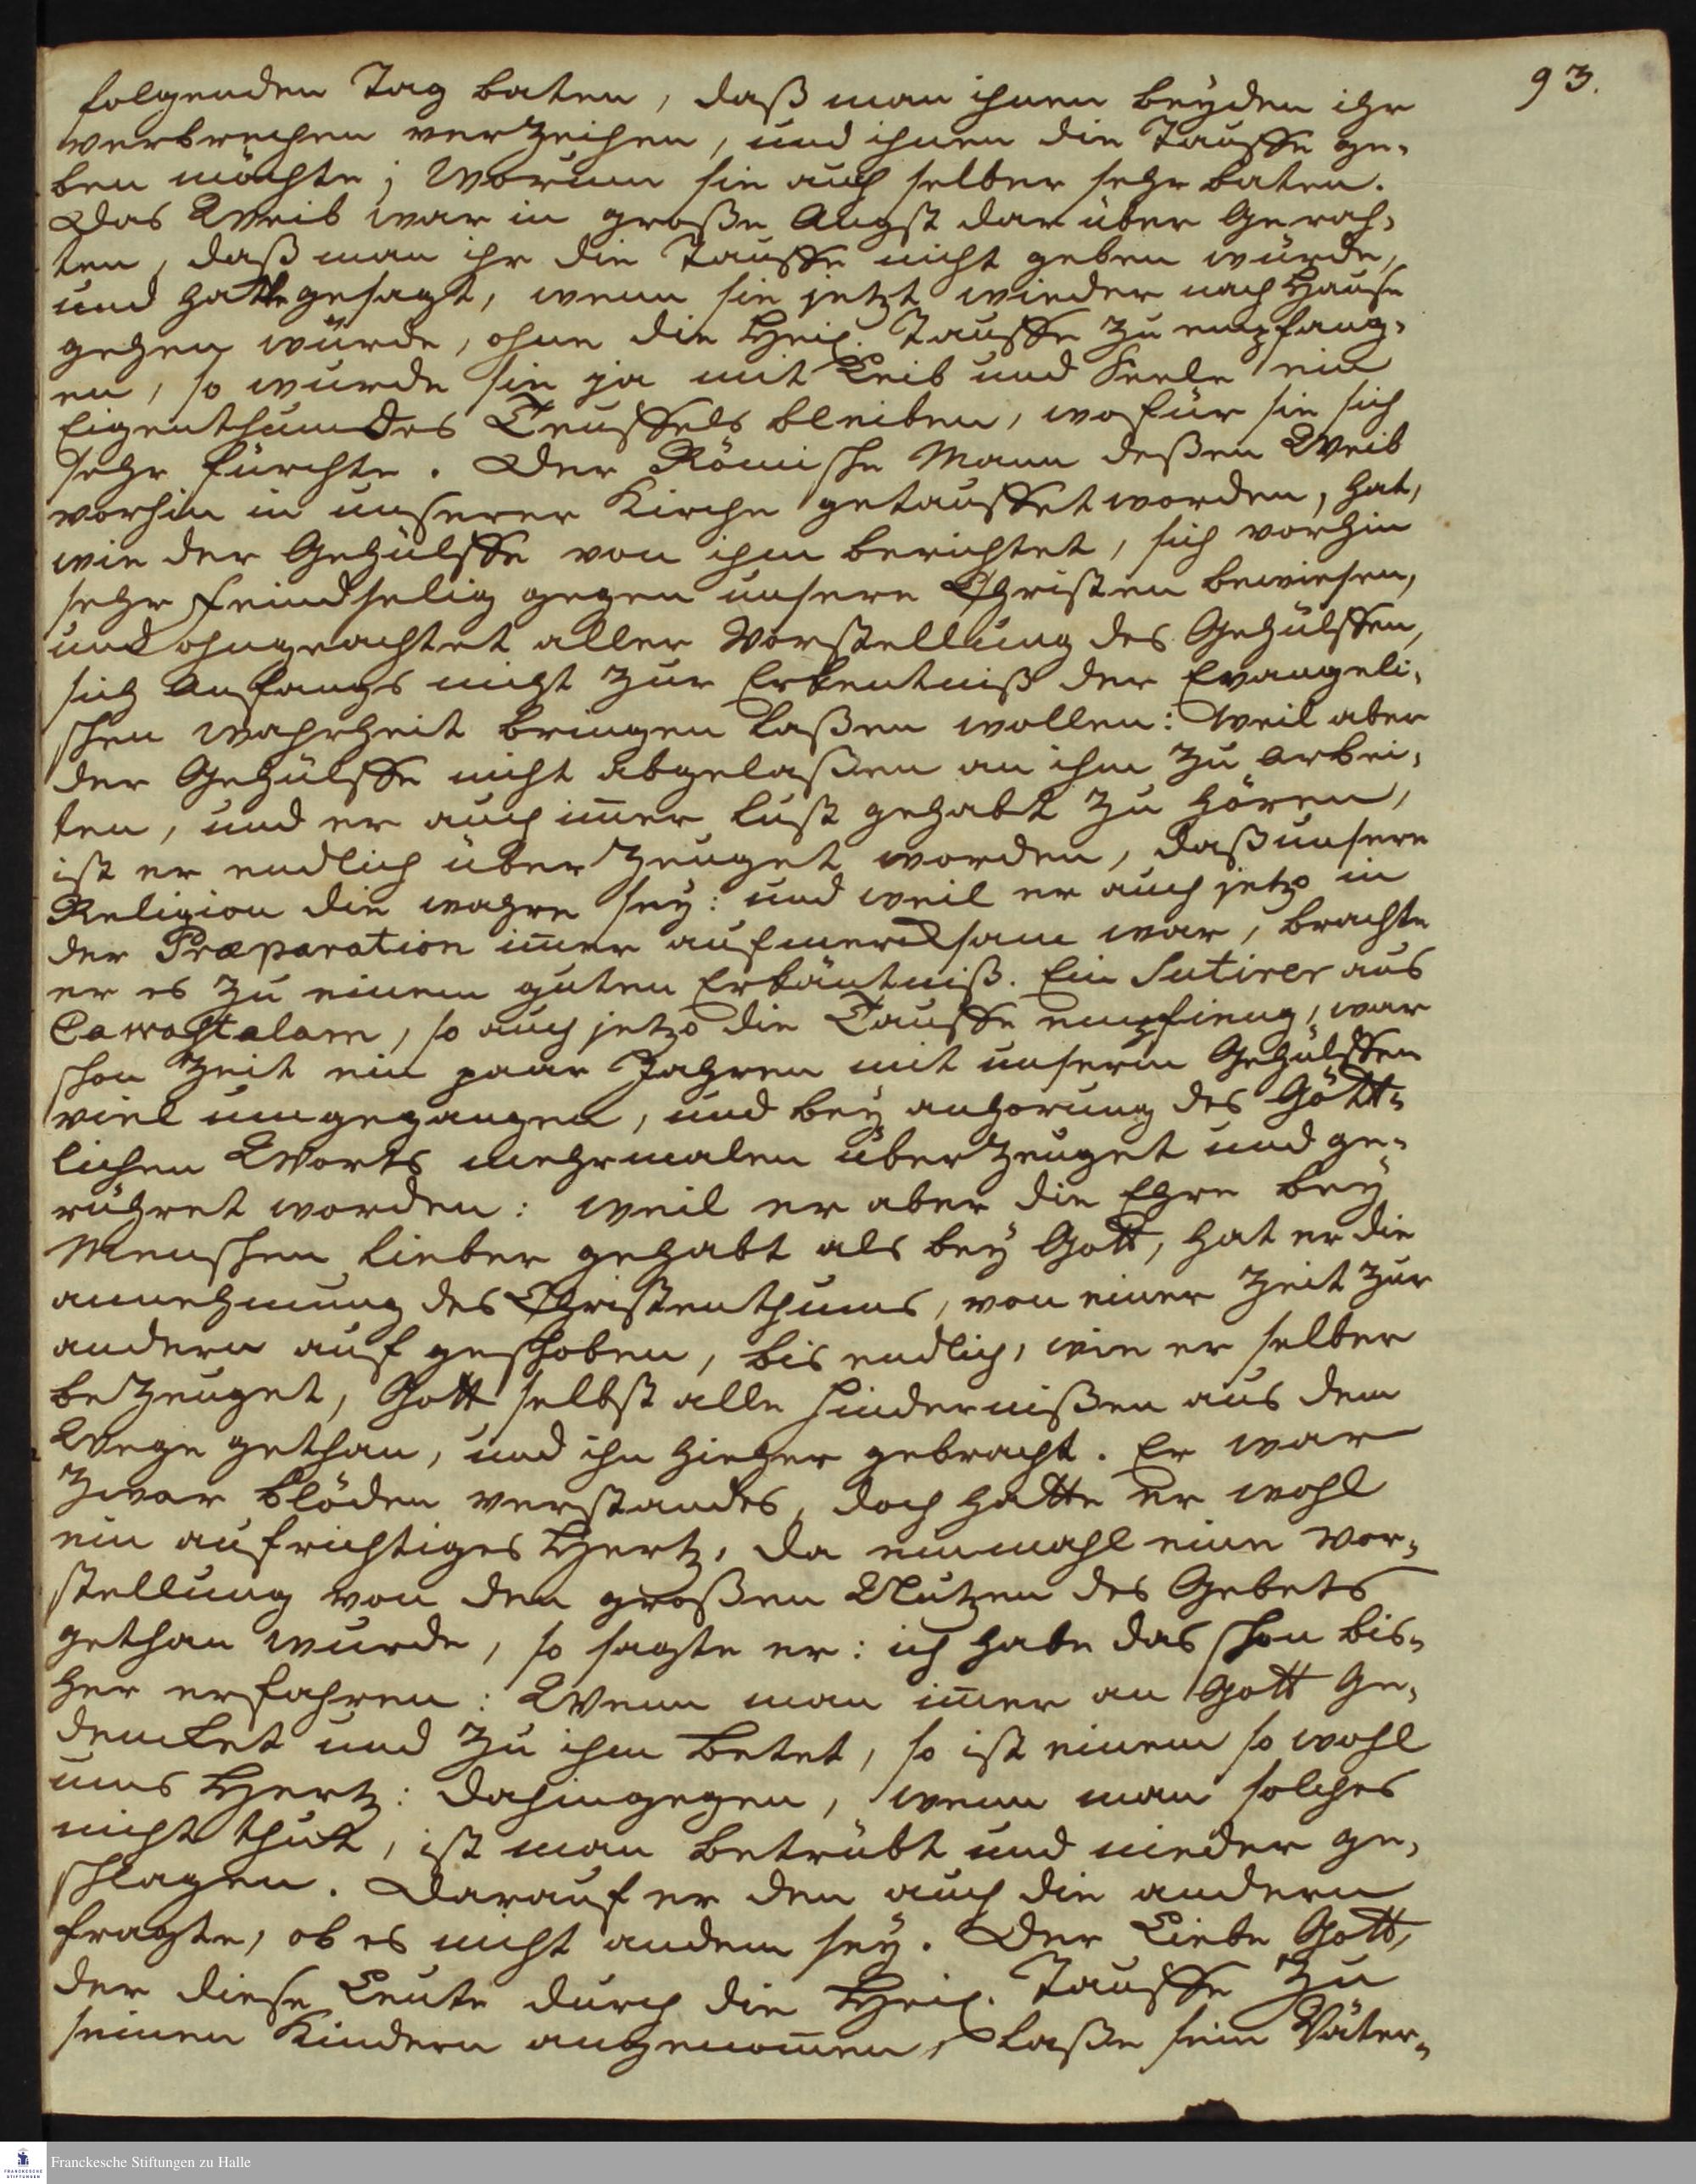 93.
folgenden Tag baten, daß man ihnen beyden ihr
verbrechen verzeihen, und ihnen die Tauffe ge-
ben möchte; Worum sie auch selber sehr baten.
Das Weib war in große Angst darüber Gerah-
ten, daß man ihr die Tauffe nicht geben würde,
und hatte gesagt, wenn sie jetzt wieder nach Hause
gehen würde, ohne die Heil. Tauffe zu empfang-
en, so wurde sie ja mit Leib und Seele ein
Eigenthum des Teuffels bleiben, wofür sie sich
sehr fürchte. Der Römische Mann deßen Weib
vorhin in unserer Kirche getauffet worden, hat,
wie der Gehülffe von ihm berichtet, sich vorhin
sehr feindselig gegen unsere Christen bewiesen,
und ohngeachtet aller Vorstellung des Gehülffen,
sich Anfangs nicht zur Erkentniß der Evangeli-
schen Wahrheit bringen laßen wollen: Weil aber
der Gehülffe nicht abgelaßen an ihm zu arbei-
ten, und er auch im̄er lust gehabt zu hören,
ist er endlich überzeuget worden, daß unsere
Religion die wahre sey: und weil er auch jetzo in
der Præparation im̄er aufmercksam war, brachte
er es zu einem guten Erkäntniß. Ein Sutirer aus
Cawastalam, so auch jetzo die Tauffe empfieng, war
schon Zeit ein paar Jahren mit unserm Gehülffen
viel umgegangen, und bey anhorung des Gött-
lichen Worts mehrmalen überzeuget und ge-
rühret worden: weil er aber die Ehre bey
Menschen lieber gehabt als bey Gott, hat er die
annehmung des Christenthums, von einer Zeit zur
andern auf geschoben, bis endlich, wie er selber
bezeuget, Gott selbst alle Hindernißen aus dem
Wege gethan, und ihn hieher gebracht. Er war
zwar blöden verstandes, doch hatte er wohl
ein aufrichtiges Hertz, da einmahl eine Vor-
stellung von den großen Nutzen des Gebets
gethan wurde, so sagte er: ich habe das schon bis-
her erfahren: Wenn man im̄er an Gott Ge-
dencket und zu ihm betet, so ist einem so wohl
ums Hertz: dahingegen, wenn man solches
nicht thut, ist man betrübt und nieder ge-
schlagen. Darauf er den auch die andern
fragte, ob es nicht andem sey. Der Liebe Gott,
der diese Leute durch die Heil. Tauffe zu
seinen Kindern angenom̄en, laße sein Väter-
Franckesche Stiftungen zu Halle